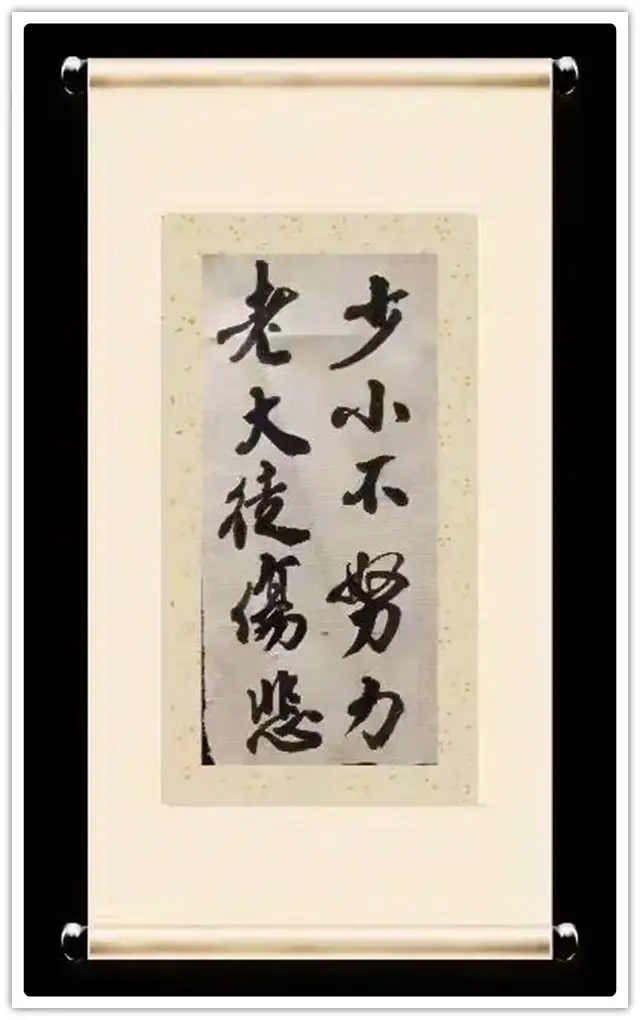 少小不努力
老大徒傷悲